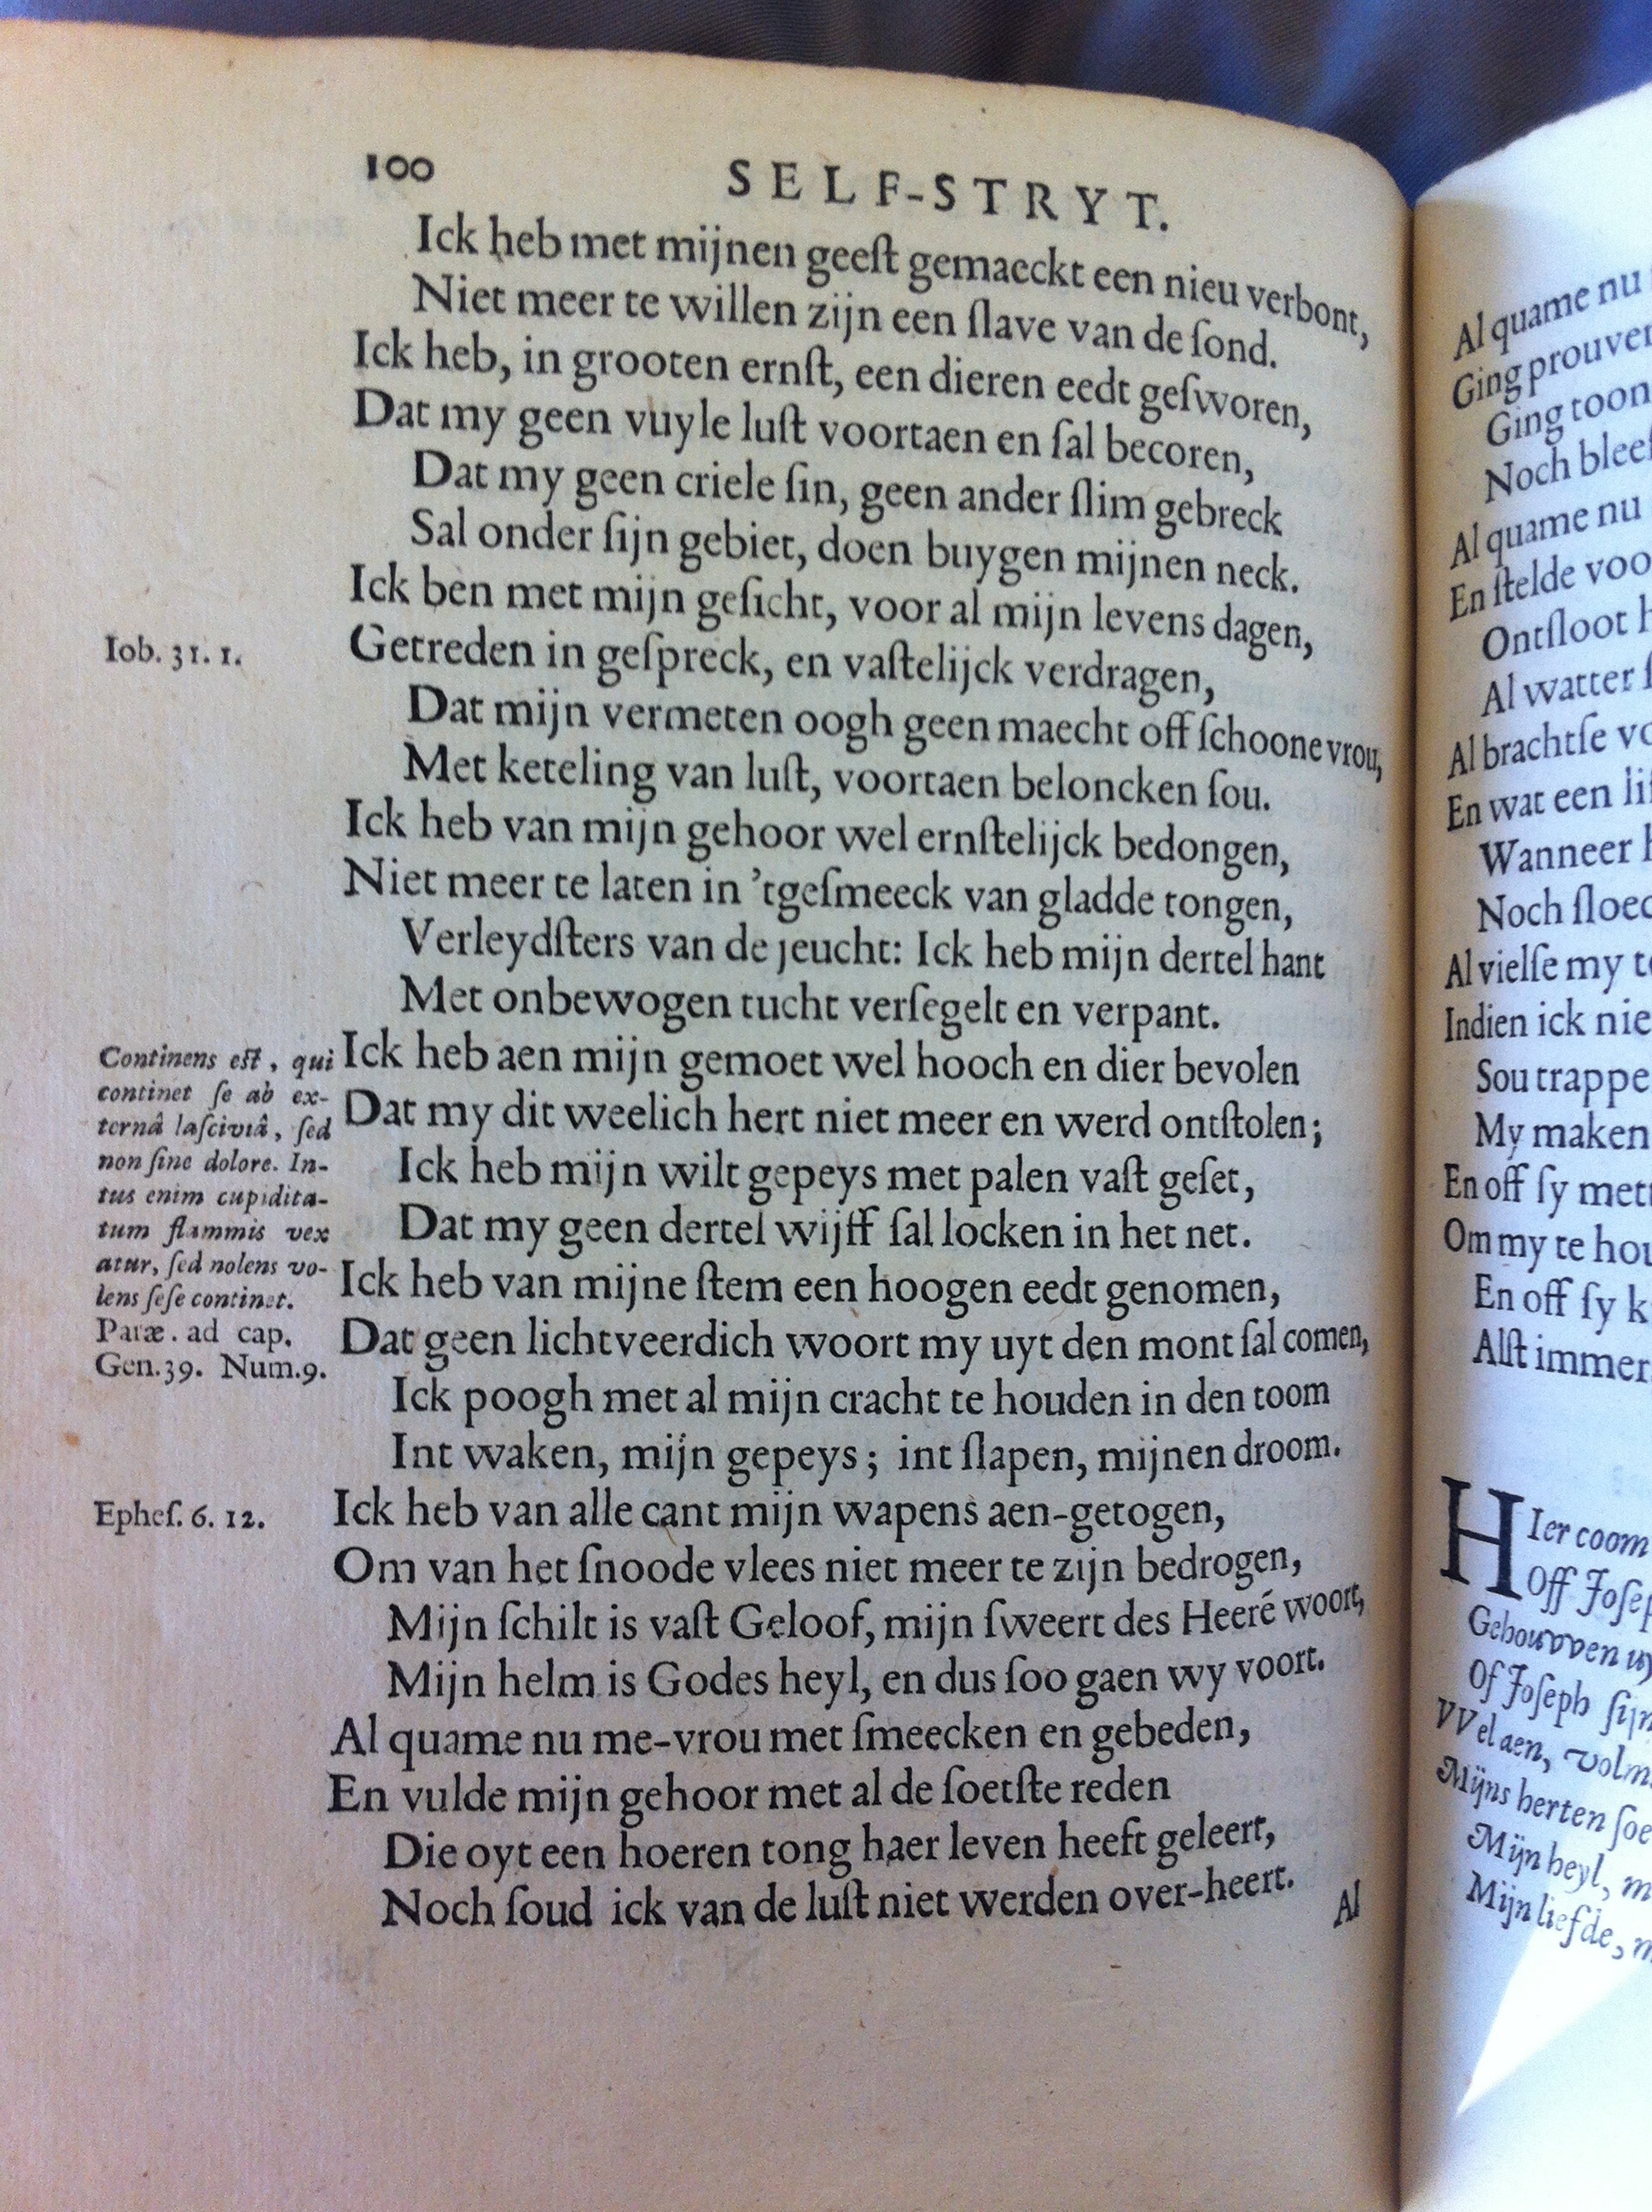 100
SELF-STRYT.
Ick heb met mijnen geeſt gemaeckt een nieu verbont,
Niet meer te willen zijn een ſlave van de ſond.
Ick heb, in grooten ernſt, een dieren eedt geſworen,
Dat my geen vuyle luſt voortaen en ſal becoren,
Dat my geen criele ſin, geen ander ſlim gebreck
Sal onder ſijn gebiet, doen buygen mijnen neck.
Ick ben met mijn geſicht, voor al mijn levens dagen,
Iob. 31. 1.
Getreden in geſpreck, en vaſtelijck verdragen,
Dat mijn vermeten oogh geen maecht off ſchoone vrou,
Met keteling van luſt, voortaen beloncken ſou.
Ick heb van mijn gehoor wel ernſtelijck bedongen,
Niet meer te laten in 'tgeſmeeck van gladde tongen,
Verleydſters van de jeucht: Ick heb mijn dertel hant
Met onbewogen tucht verſegelt en verpant.
Ick heb aen mijn gemoet wel hooch en dier bevolen
Dat my dit weelich hert niet meer en werd ontſtolen;
Ick heb mijn wilt gepeys met palen vaſt geſet,
Dat my geen dertel wijff ſal locken in het net.
Ick heb van mijne ſtem een hoogen eedt genomen,
Dat geen lichtveerdich woort my uyt den mont ſal comen,
Ick poogh met al mijn cracht te houden in den toom
Int waken, mijn gepeys; int ſlapen, mijnen droom.
Continens eſt, qui
continet ſe ab ex-
ternâ laſciviâ, ſed
non ſine dolore. In-
tus enim cupidita-
tum flammis vex
atur, ſed nolens vo-
lens ſeſe continet.
Paræ. ad cap.
Gen.39. Num.9.
Epheſ. 6. 12.
Ick heb van alle cant mijn wapens aen-getogen,
Om van het ſnoode vlees niet meer te zijn bedrogen,
Mijn ſchilt is vaſt Geloof, mijn ſweert des Heeré woort,
Mijn helm is Godes heyl, en dus ſoo gaen wy voort.
Al quame nu me-vrou met ſmeecken en gebeden,
En vulde mijn gehoor met al de ſoetſte reden
Die oyt een hoeren tong haer leven heeft geleert,
Noch ſoud ick van de luſt niet werden over-heert.
Al
Al quame nu
Ging
Ging toon
Noch
Al quame nu
En ſtelde
Ontſloot
Al watter
Al brachtſe
En wat een
Wanneer
Noch
Al vielſe my
Indien ick
Sou
My maken
En off ſy
Om my te
En off ſy
Alſt immer
HIer coom
Off
Gebouvven
Of Joſeph
VVel aen,
Mijns herten
Mijn heyl,
Mijn liefde,